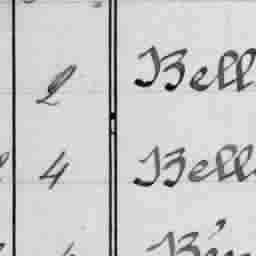 2 Bell
4 Bell